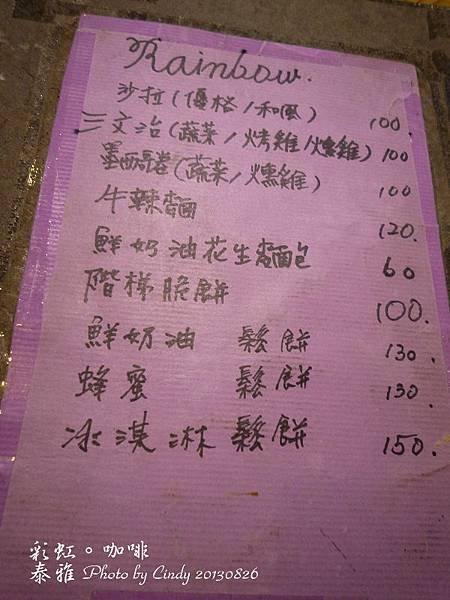 Rainbow.
沙拉(優格/和風) 100.
三文治(蔬菜/烤雞/燻雞) 100
墨西哥卷(蔬菜/燻雞) 100
牛辣麵 120.
鮮奶油花生麵包 60
階梯脆餅 100.
鮮奶油 鬆餅 130.
蜂蜜 鬆餅 130.
冰淇淋 鬆餅 150.
彩虹。咖啡
泰雅 Photo by Cindy 20130826